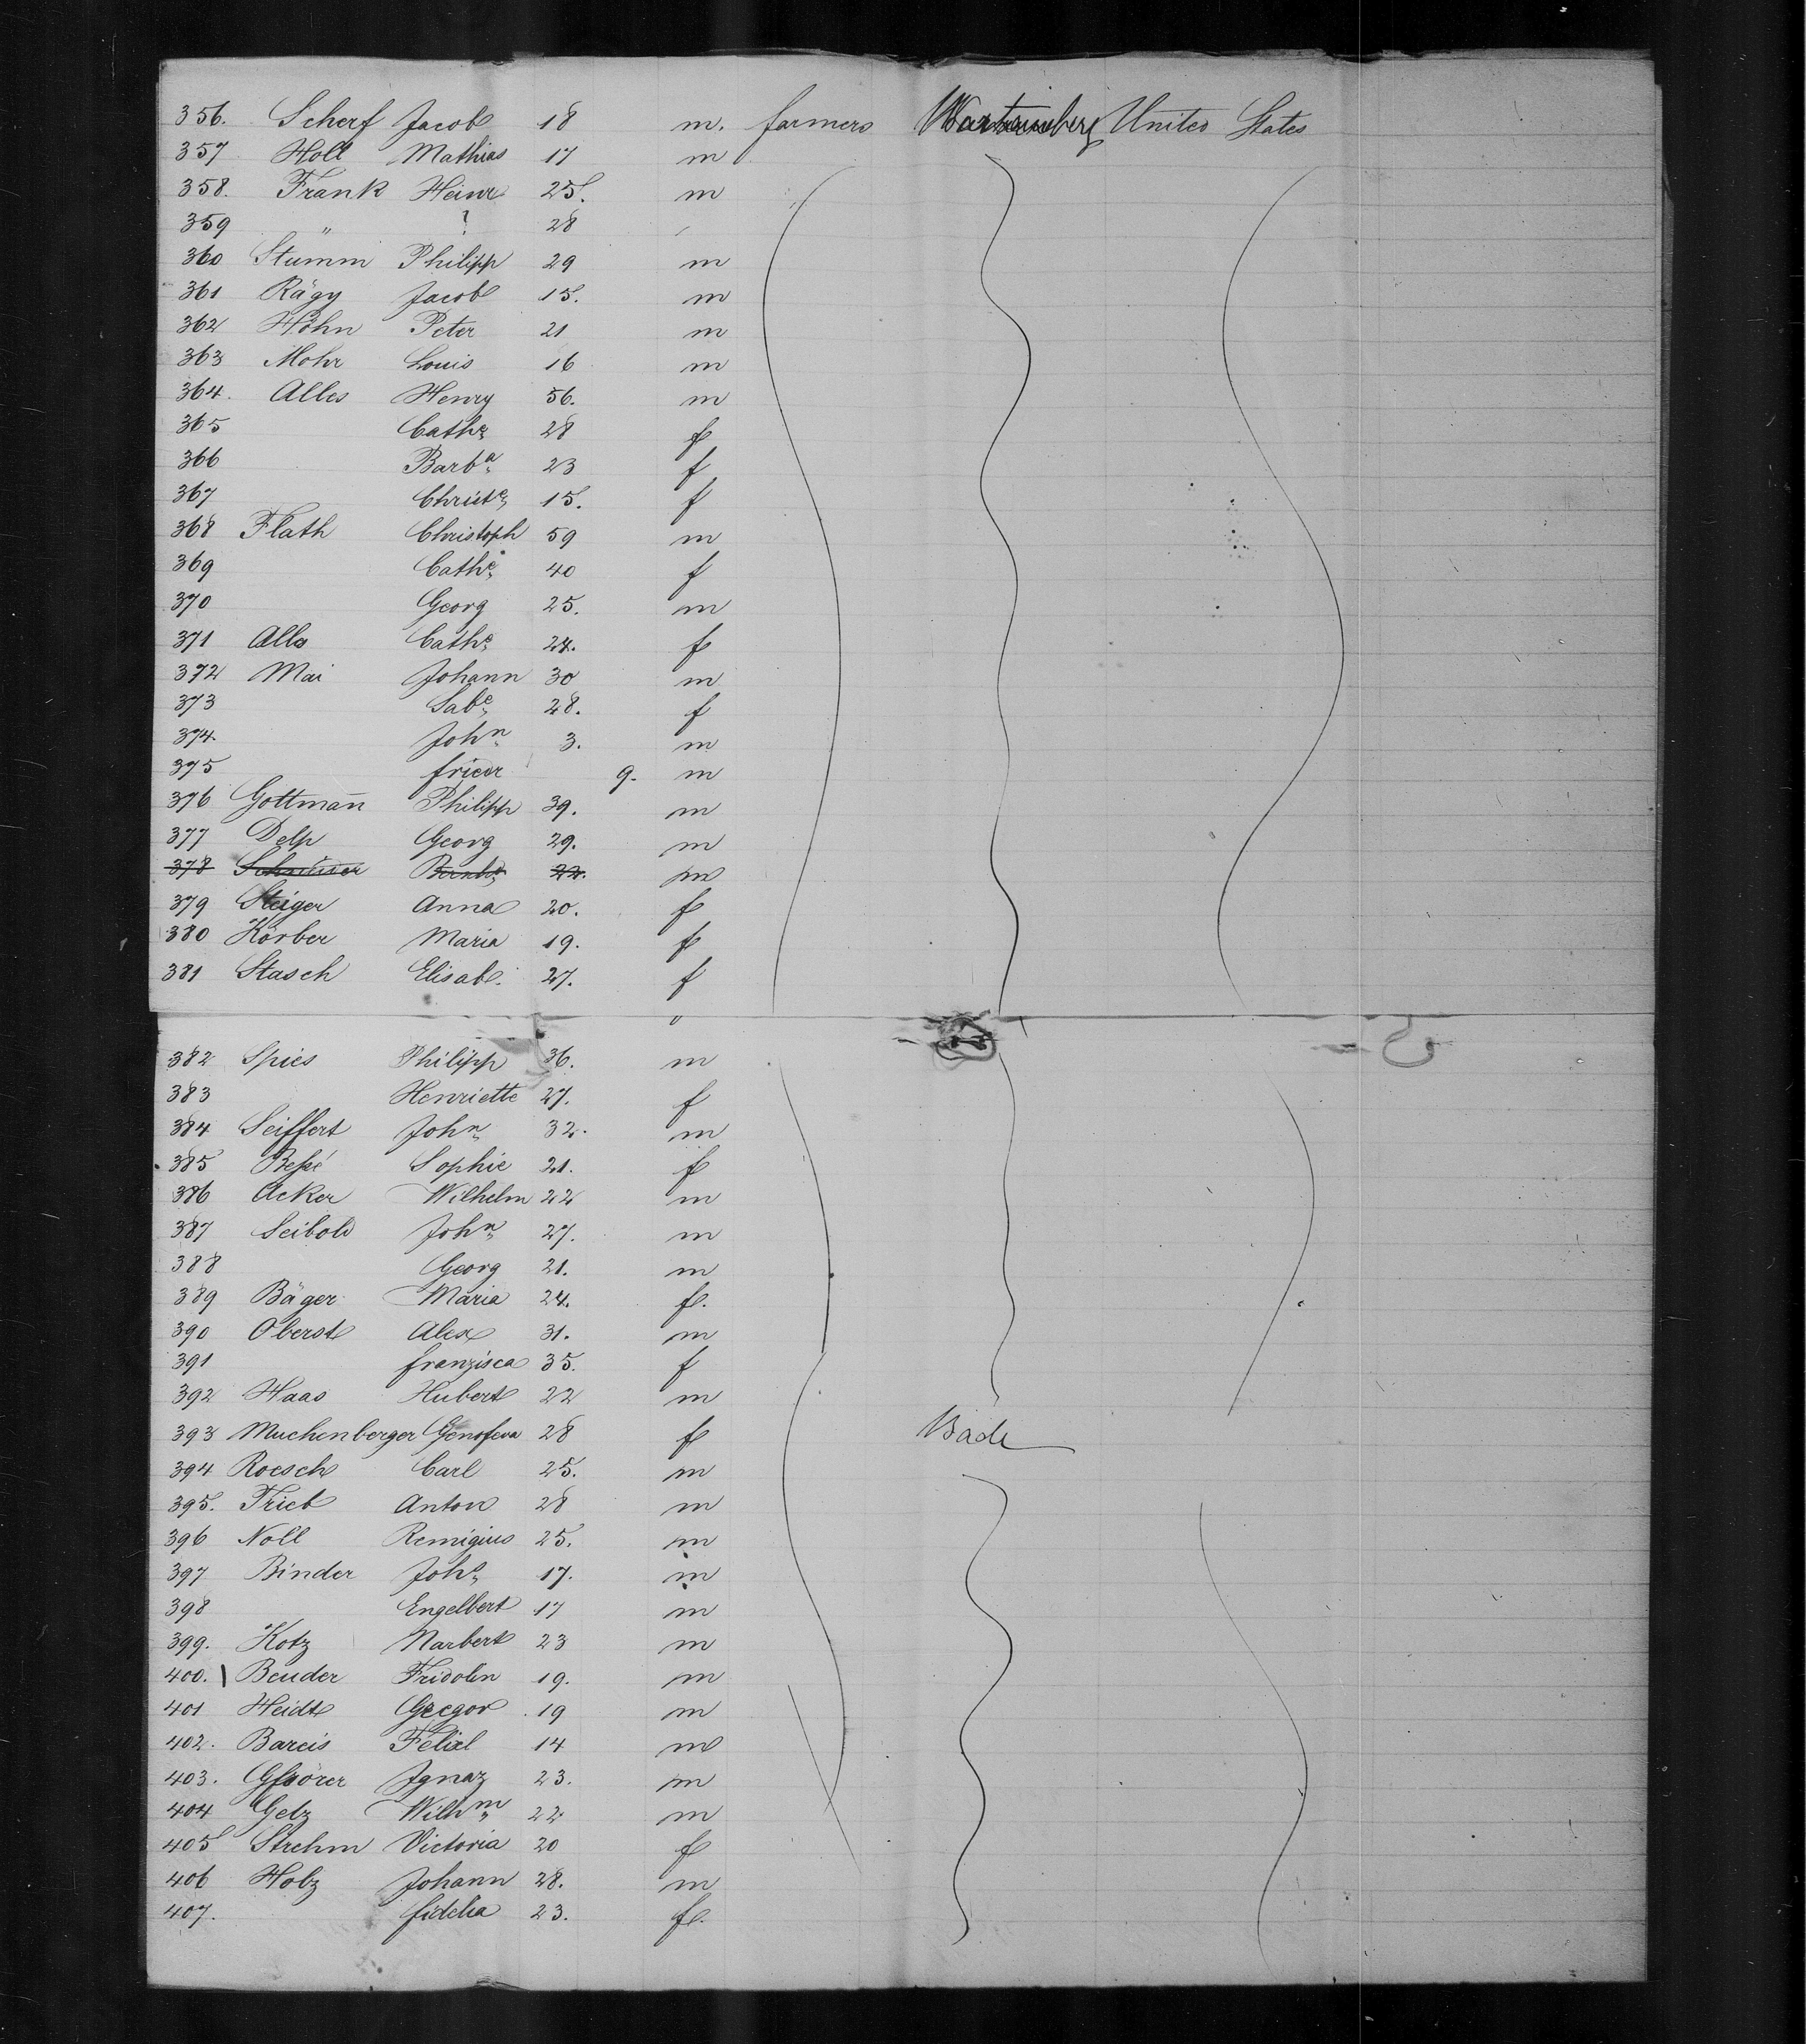 356. Scherf Jacob 18 m. farmers Wurtemberg United States
357 Holl Mathias 17 m
358. Frank Heinr 25. m
359 " ? 28
360 Stumm Philipp 29 m
361 Rägy Jacob 15. m
362 Höhn Peter 21 m
363 Mohr Louis 16 m
364. Alles Henry 56. m
365 Cathe 28 f
366 Barba 23 f
367 Christe 15. f
368 Flath Christoph 59 m
369 Cathe 40 f
370 Georg 25. m
371 Alls Cathe 24. f
372 Mai Johann 30 m
373 Sabe 28. f
374. John 3. m
375 9. m
376 Gottman̄n Philipp 39. m
377 Delp Georg 29. m
378 22. m
379 Steiger Anna 20. f
380 Körber Maria 19. f
381 Stasch Elisab. 27. f
382 Spies Philipp 36. m
383 Henriette 27. f
384 Seiffert John 32. m
385 Sophie 21. f
386 Acker Wilhelm 22 m
387 Seibold John 27. m
388 Georg 21. m
389 Bäger Maria 24. f.
390 Oberst Alex 31. m
391 franzisca 35. f
392 Haas Hubert 22 m
393 Muchenberger Genofeva 28 f Bade
394 Roesch Carl 25. m
395. Trieb Anton 28 m
396 Noll Remigius 25. m
397 Binder Johs 17. m
398 Engelbert 17 m
399. Kotz Narbert 23 m
400. Beuder Fridolin 19. m
401 Heidt Gregor 19 m
402. Bareis 14 m
403. Gfrörer Ignaz 23. m
404 Getz Wilhm 22 m
405 Strehm Victoria 20 f
406 Holz Johann 28. m
407. fidelia 23. f.